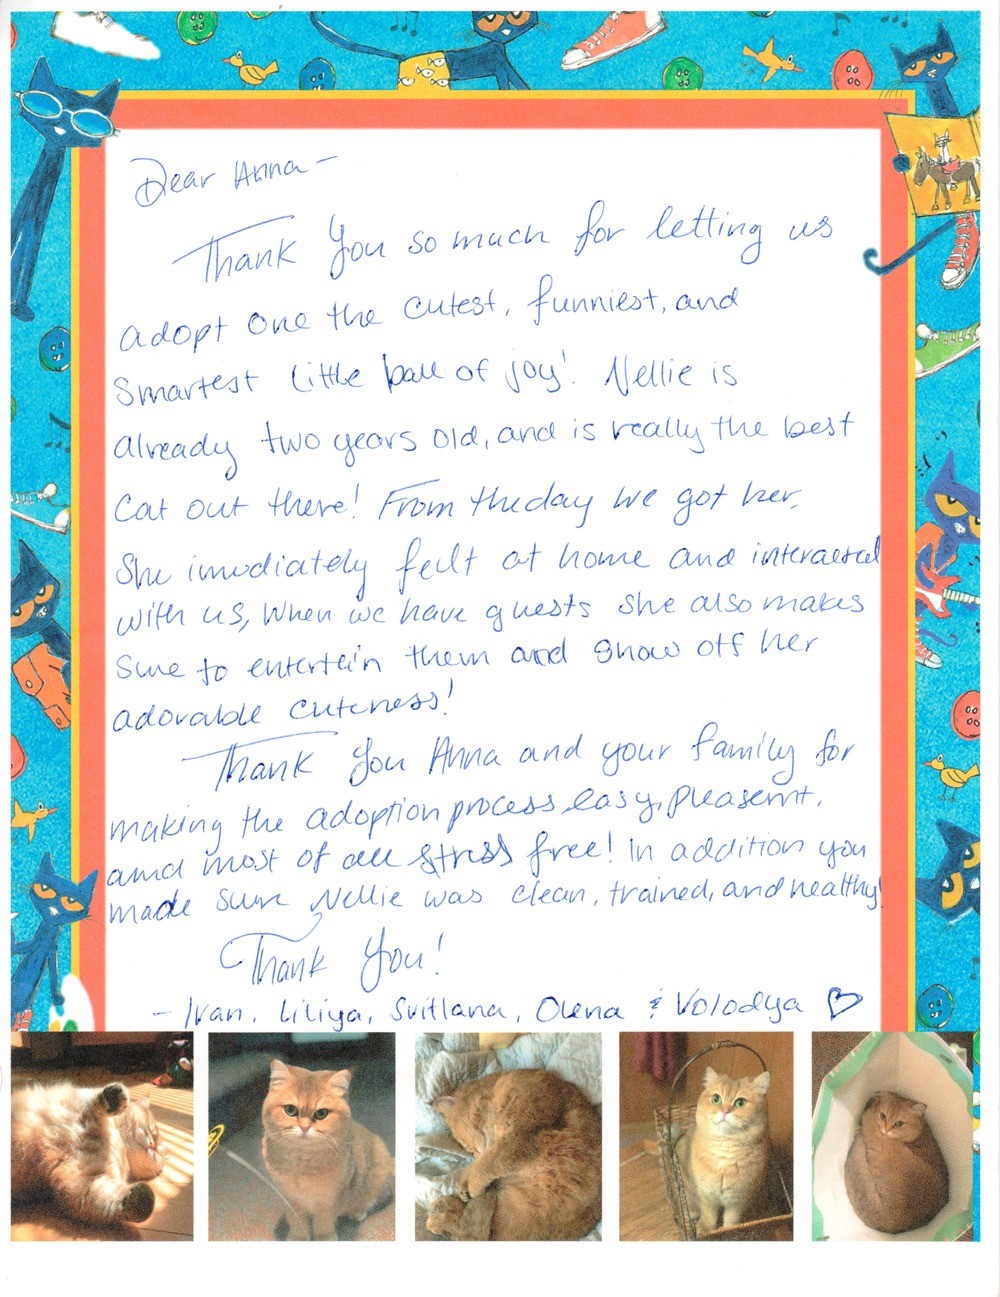 Dear Anna -
Thank You so much for letting us
adopt one the cutest, funniest, and
smartest little ball of joy! Nellie is
already two years old, and is really the best
cat out there! From the day we got her,
she imediately felt at home and interacted
with us, when we have guests she also makes
sure to entertein them and show off her
adorable cuteness!
Thank You Anna and your family for
making the adoption process easy, pleasent,
and most of all stress free! In addition you
made sure Nellie was clean, trained, and healthy!
Thank You!
- Ivan, Liliya, Svitlana, Olena & Volodya ♡